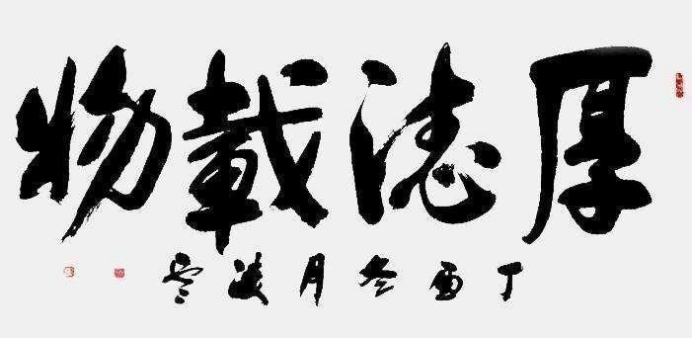 厚德載物
丁酉冬月凌雲